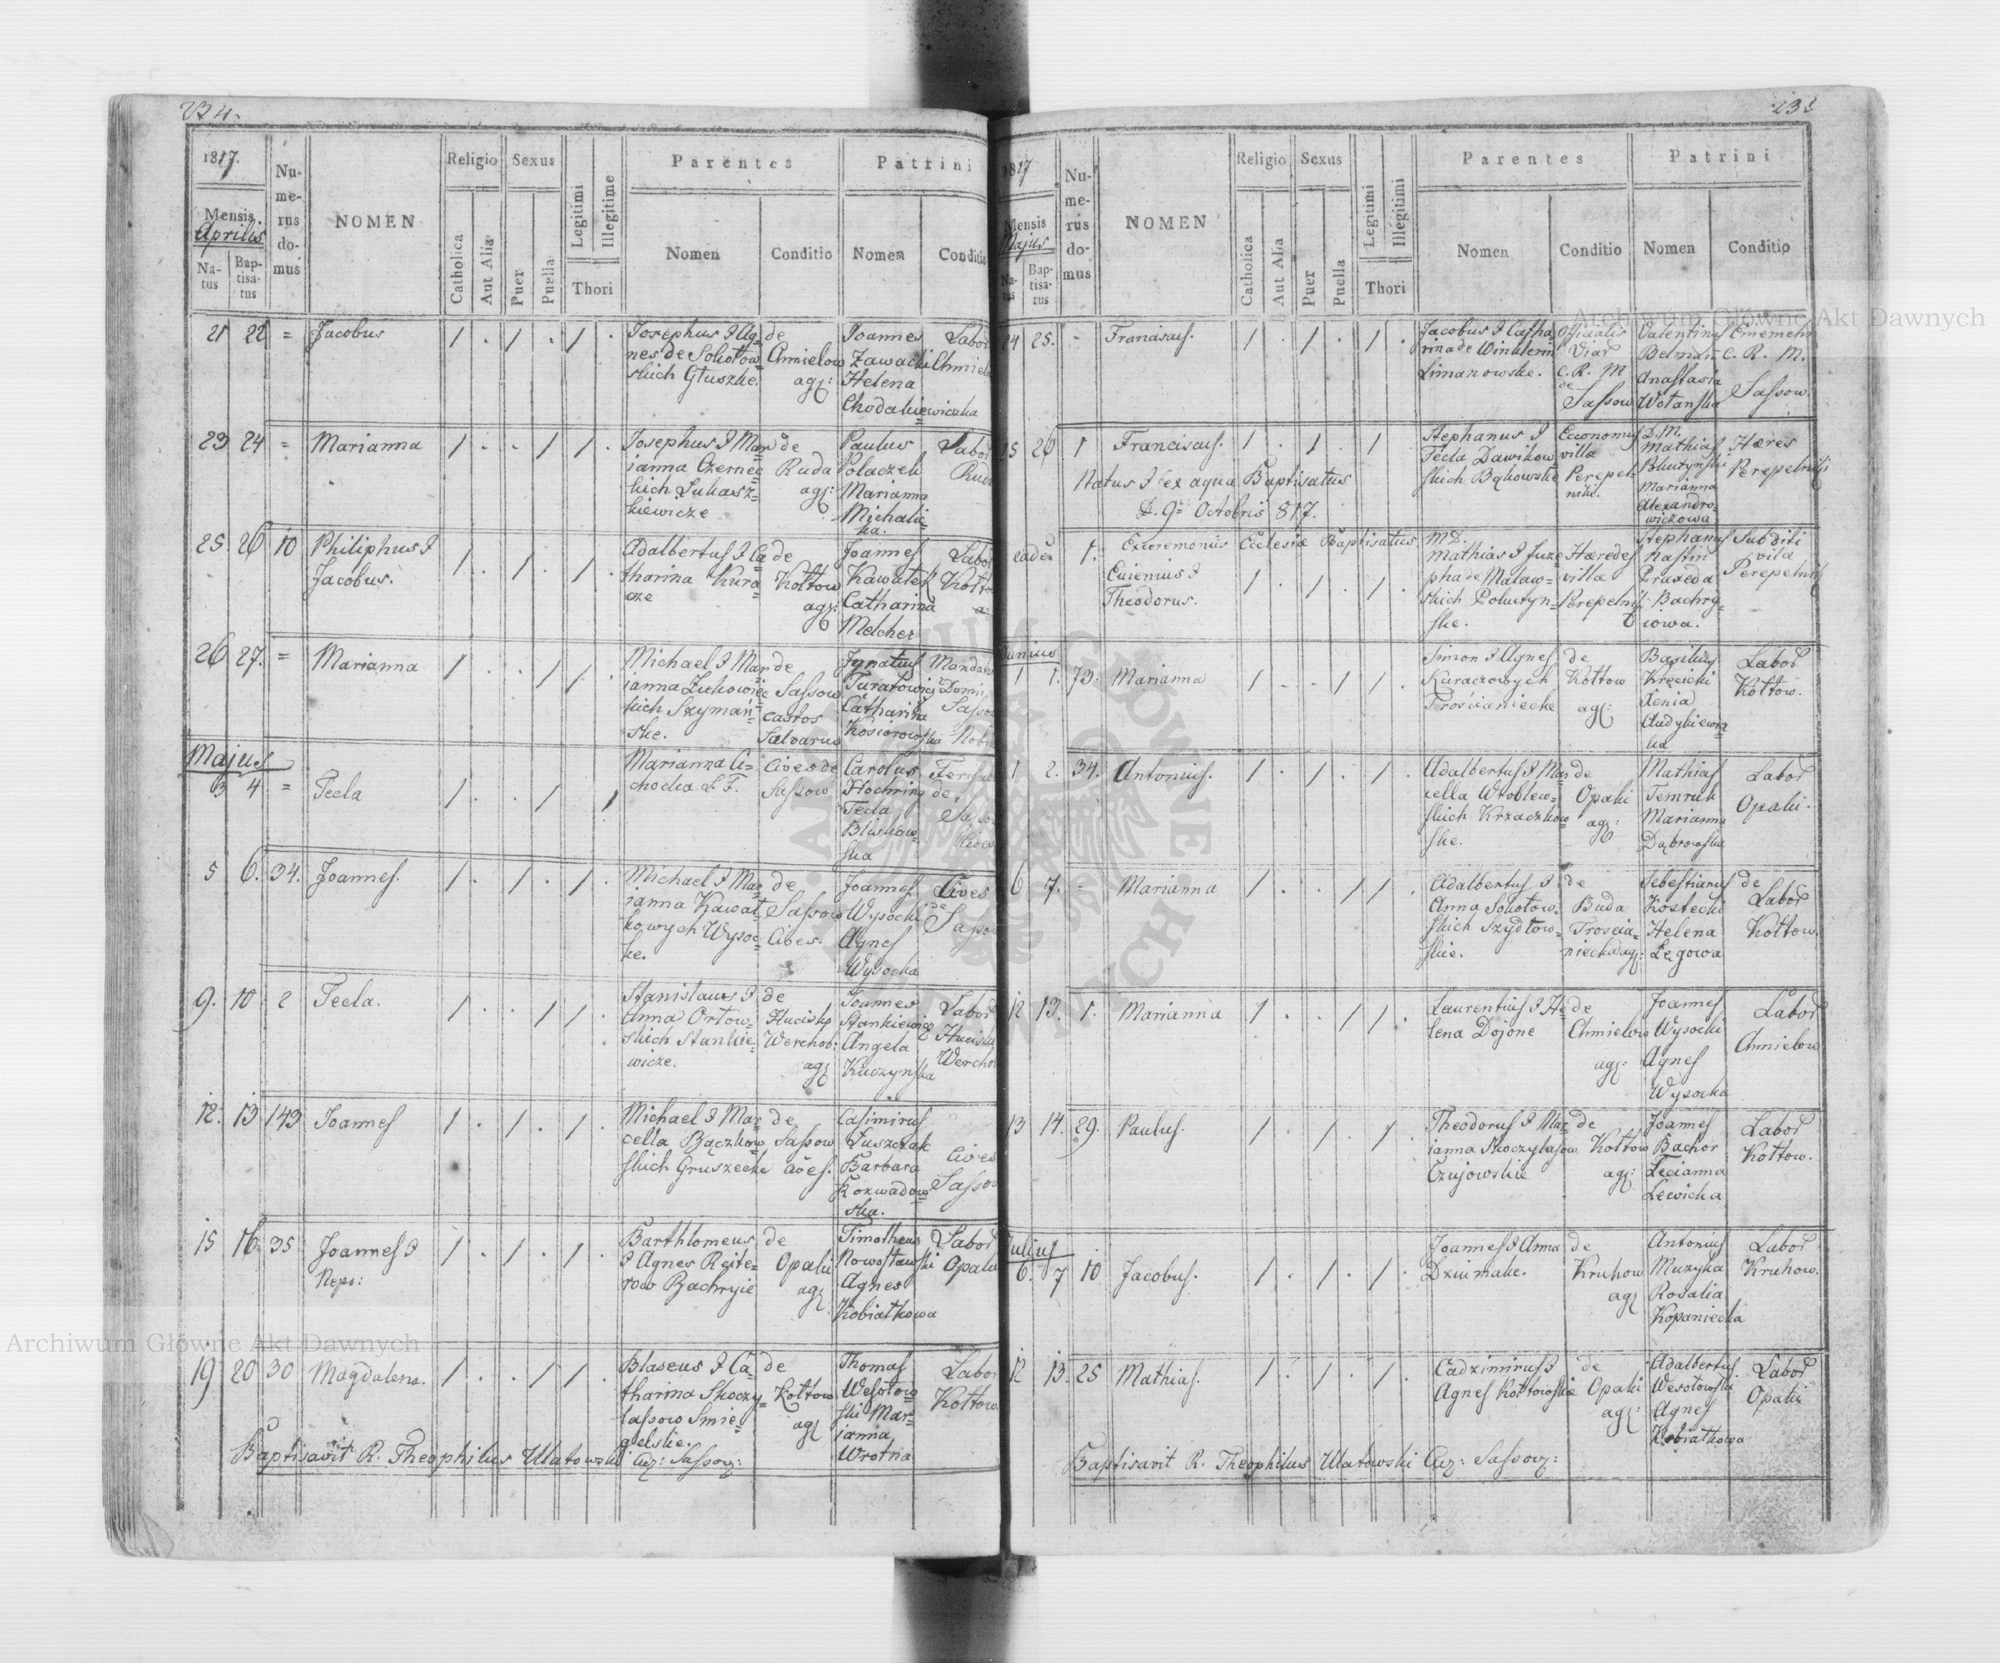 234.
1817.
Mensis
Aprilis
Na-
tus
Bap-
tisa-
tus
Nu-
me-
rus
do-
mus
NOMEN
Religio
Catholica
Aut Alia
Sexus
Puer
Puella
Legitimi
Illegitime
Thori
Parentes
Nomen
Conditio
Patrini
Nomen
Conditio
21 22 = Jacobus
Josephus & Ag=
nes de Sokołow=
skich Głuszke.
de
Chmielow
agr:
Joannes
Zawacki
Helena
Chodakiewiczka
Labor
23 24 = Marianna
Josephus & Mar=
ianna
kich Łukasz=
kiewicze
de
Ruda
agr:
Paulus
Polaczek
Marianna
Michalic=
ka.
Labor
25. 26 10 Philiphus &
Jacobus.
Adalbertus & Ca=
tharina Kura=
cze
de
Kołtow
agr:
Joannes
Kawałek
Catharina
Melcher
Labor
26 27. = Marianna
Michael & Mar=
ianna Żukowie=
kich Szymań=
ske.
de
Sassow
Joannes
Catharina
Majus
3 4 = Tecla
Marianna Ci=
chocka
Cives de
Sassow
Carolus
Hochring
Tecla
ska
5 6. 34. Joannes.
Michael & Mar=
ianna Kawał=
kowych Wysoc=
ke.
de
Sassow
Cives.
Joannes
Wysocki
Agnes
Wysocka
Cives
de
9. 10 2 Tecla.
Stanislaus &
Anna Orłow=
skich Stankie=
wicze.
de
Hucisko
Werchob:
agr
Joannes
Stankiewicz
Angela
Kuczyńska
Labor
12. 13 143 Joannes
Michael & Mar=
cella Bączkow=
skich Gruszecke
de
Sassow
Cives.
Casimirus
Barbara
Rozwadow=
ska.
Cives
15 16. 35 Joannes &
Nepo:
Barthlomeus
& Agnes Reite=
row Bachryie
de
Opaki
agr
Timotheus
Nowosławski
Agnes
Kobiatkowa
Labor
19 20 30 Magdalena.
Blaseus & Ca=
tharina Skoczy=
lassow Śmie=
gelskie.
de
Kołtow
agr
Thomas
Wesołow=
ski Mar=
ianna
Wrotna
Labor
Kołtow.
Baptisavit R. Theophilus Ulatowski Cur: Sassov:
235
1817
Mensis
Majus
Na-
tus
Bap-
tisa-
tus
Nu-
me-
rus
do-
mus
NOMEN
Religio
Catholica
Aut Alia
Sexus
Puer
Puella
Legitimi
Illegitimi
Thori
Parentes
Nomen
Conditio
Patrini
Nomen
Conditio
24 25. - Franciscus.
Jacobus & Catha=
rina de Winklerin
Limanowske.
Officialis
C. R. M
de
Sassow
Valentinus
Anastasia
Wolanska
C. R. M.
Sassow.
25 26 1 Franciscus.
Natus & ex aqua Baptisatus
D. 9a Octobris 817.
Stephanus &
Tecla Dawikow=
skich Bąkowske
Economus
villa
Perepel=
niki.
D. M.
Mathias
Marianna
Alexandro=
wiczowa
Hæres
Perepelniki
eadem 1. Exceremoniis Ecclesiæ Baptisatus
Euienius &
Theodorus.
MD.
Mathias & Juze=
pha de Malaw=
skich Połutyn=
ske.
Hæredes
villæ
Perepelniki
Stephanus
Praxeda
Bachry=
iowa.
Subditi
villæ
Perepelniki
Junius
1 1. 73. Marianna
Simon & Agnes
Kuraczowych
Trościanieckie
de
Kołtow
agr:
Basilius
Kręcicki
Xenia
ka
Labor
Kołtow.
1 2. 34. Antonius.
Adalbertus & Mar=
cella Wroblew=
skich Krzaczkow=
ske.
de
Opaki
agr:
Mathias
Temruk
Marianna
Dąbrowska
Labor
Opaki.
6 7. - Marianna
Adalbertus &
Anna Sokołow=
skich Szydłow=
skie.
de
Huta
Troscia=
niecka agr:
Sebestianus
Kostecki
Helena
Łęgowa
de
Labor
Kołtow.
12 13. 1. Marianna
Laurentius & He=
lena Dojone
de
Chmielow
agr:
Joannes
Wysocki
Agnes
Wysocka
Labor
Chmielow
13 14. 29. Paulus.
Theodorus & Mar=
ianna Skoczylasow
Czujowskie
de
Kołtow
agr:
Joannes
Bachor
Lewicka
Labor
Kołtow.
Julius
6. 7 10 Jacobus.
Joannes & Anna
Dziumake.
de
Kruhow
agr
Antonius
Muzyka
Rosalia
Kopaniecka
Labor
Kruhow.
12 13. 25 Mathias.
Cadzimirus &
Agnes Kołtowskie
de
Opaki
agr:
Adalbertus.
Wesołowski
Agnes
Kobiatkowa
Labor
Opaki
Baptisavit R. Theophilus Ulatowski Cur: Sassov:
Archiwum Główne Akt Dawnych
Archiwum Główne Akt Dawnych